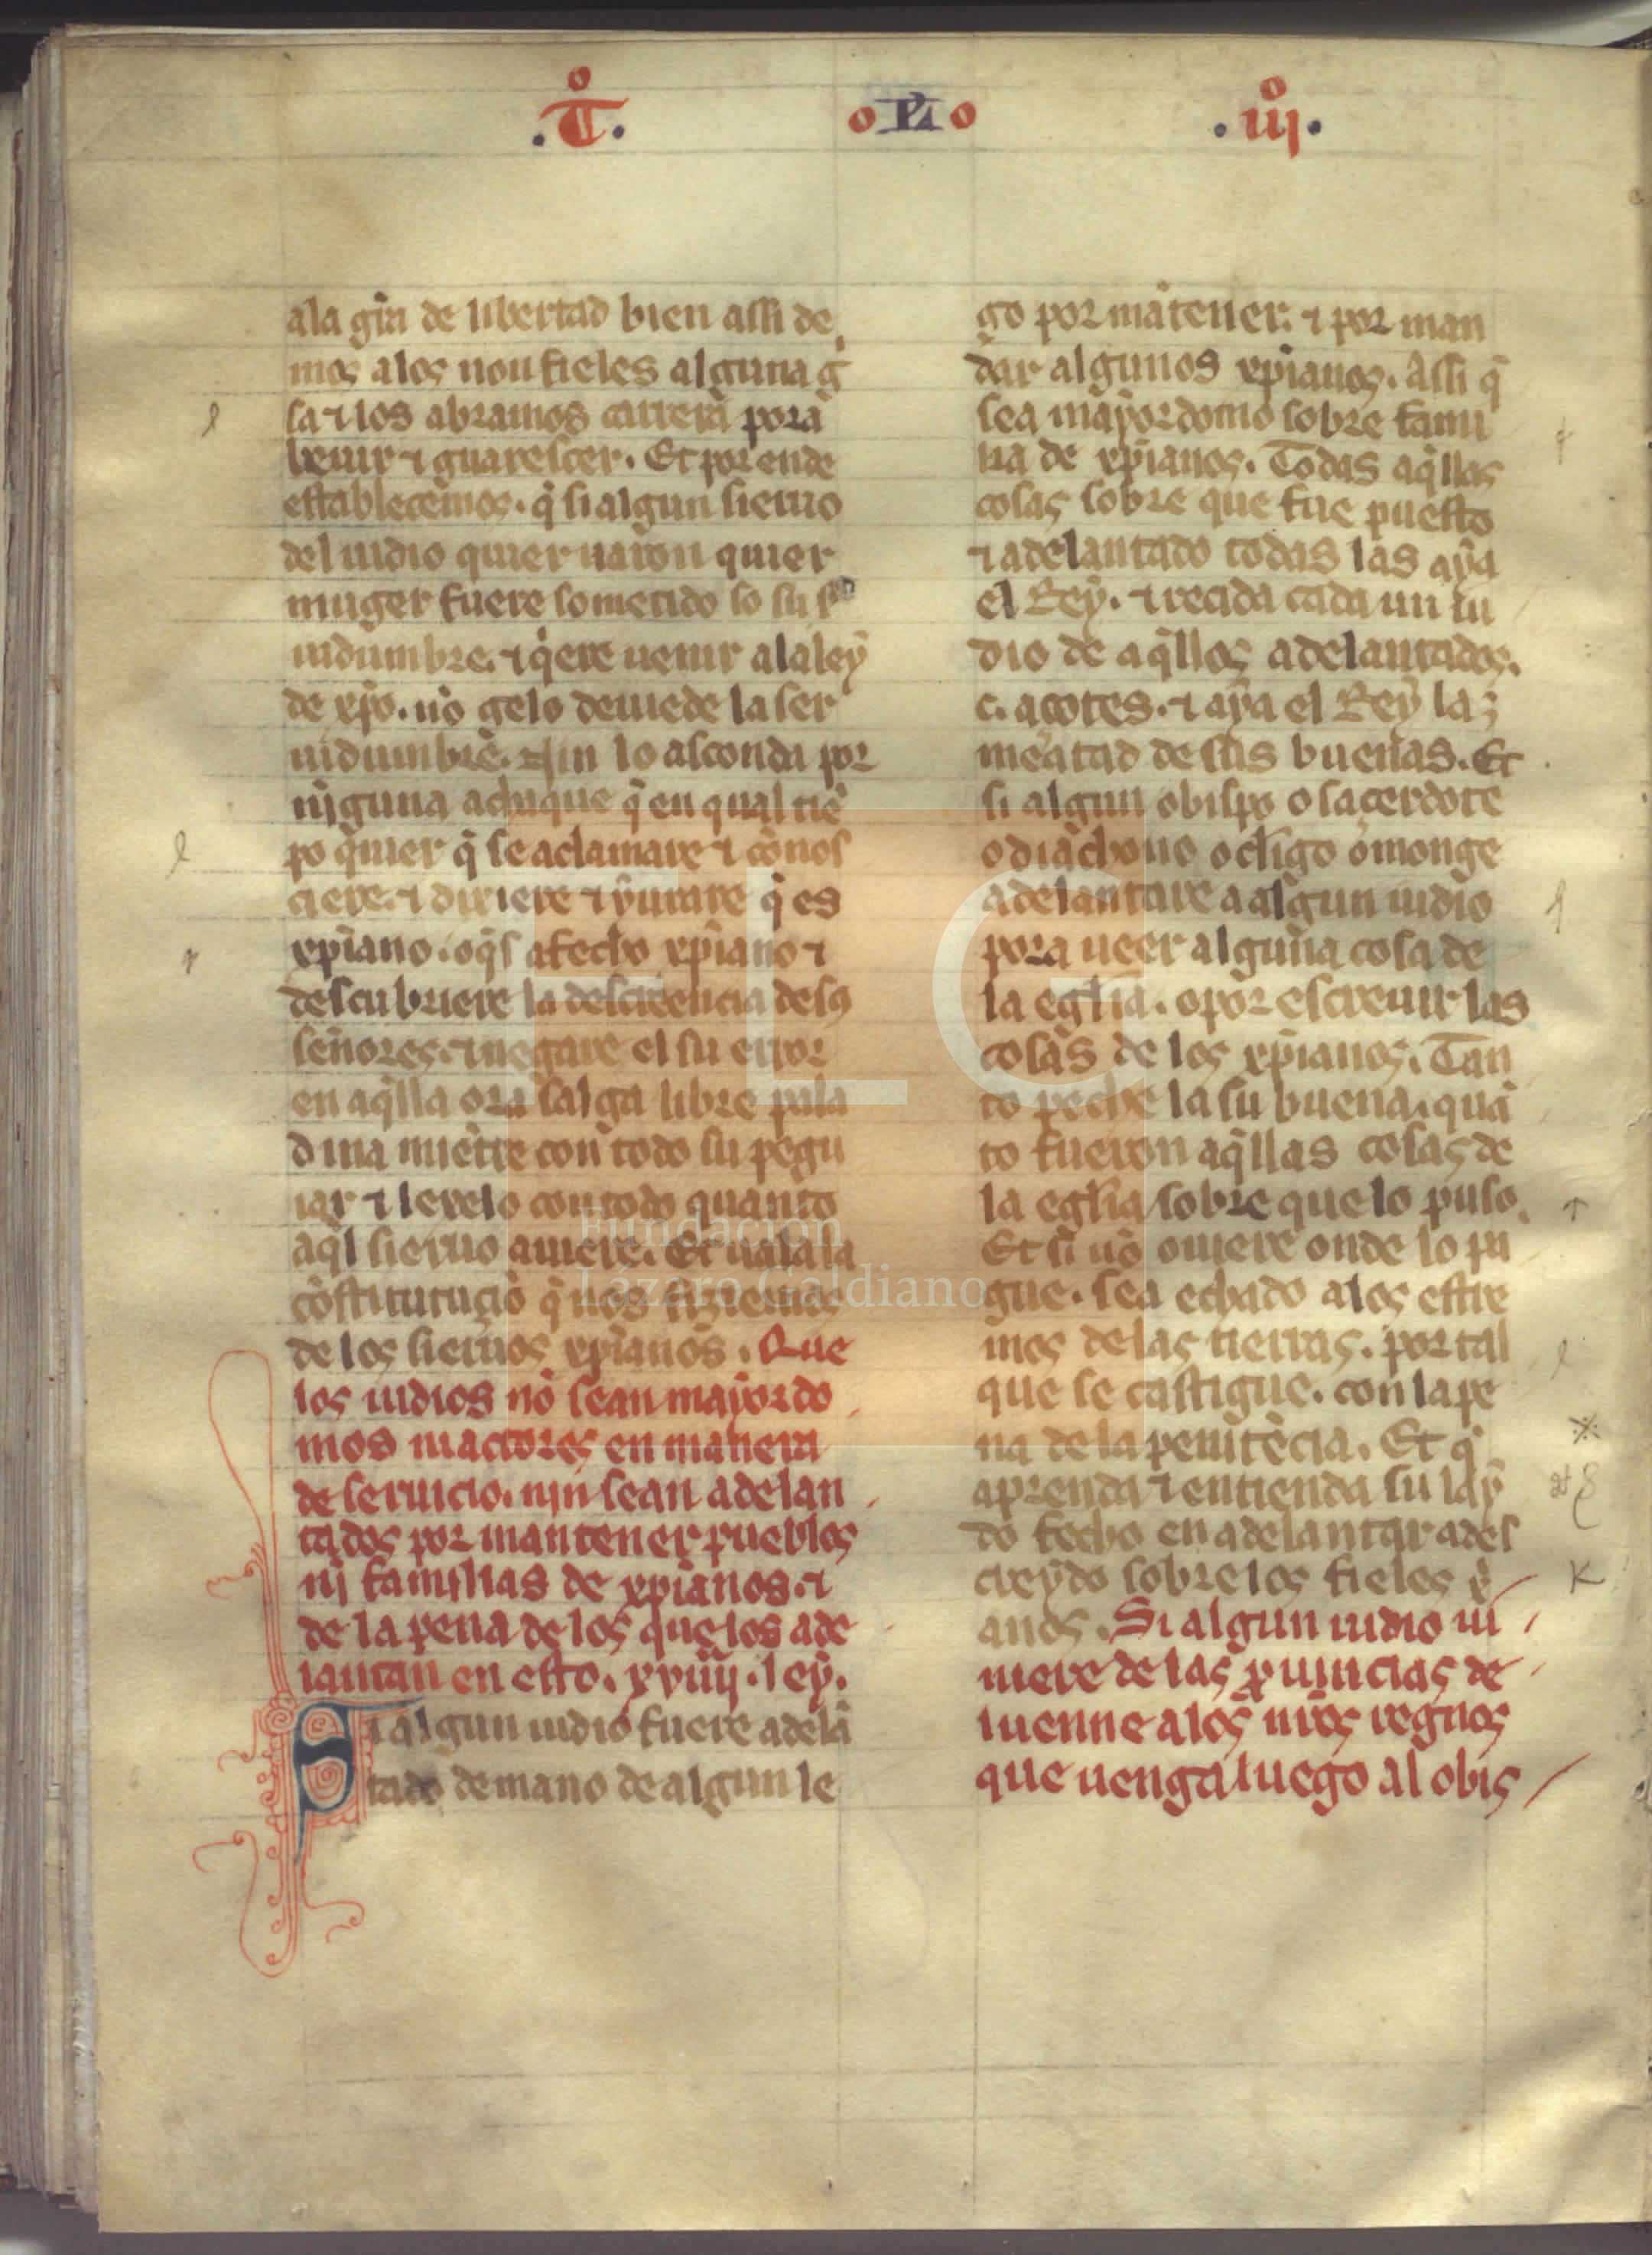 .T̊. o PL o .iij̊.
ala gr̃a de libertad bien assi de
mos alos non fieles alguna g̃
sa ⁊ los abramos carrera pora
beuir ⁊ guarescer. Et por ende
establecemos. q̃ si algun sieruo
del iudio quier uaron quier
muger fuere sometido so su s
uidumbre. ⁊ q̃ere uenir ala ley
de xp̃o. nõ gelo deuiede la ser
uidumbre. nin lo asconda por
nįguna achaque q̃ en qual tiẽ
po quier q̃ se aclamare ⁊ cõnos
ciere. ⁊ dixiere ⁊ yurare q̃ es
xp̃iano. o q̃s afecho xp̃iano ⁊
descubriere la descreencia de sꝰ
señores. ⁊ negare el su error
en aq̃lla ora salga libre pala
dina miẽtre con todo su pegu
iar ⁊ leuelo con todo quanto
aq̃l sieruo ouiere. Et uala la
cõstitutuçiõ q̃ nos fiziemos
de los sieruos xp̃ianos. Que
los iudios nõ sean mayordo
mos ni actores en manera
de seruicio. nin sean adelan
tados por mantener pueblos
nj familias de xp̃ianos. ⁊
de la pena de los que los ade
lantan en esto. xviiij. ley.
Si algun iudio fuere adelã
tado de mano de algun le
go por mãtener. ⁊ por man
dar algunos xp̃ianos. Assi q̃
sea mayordomo sobre fami
lia de xp̃ianos. Todas aq̃llas
cosas sobre que fue puesto
⁊ adelantado todas las aya
el Rey. ⁊ reciba cada un iu
dio de aq̃llos adelantados.
c. açotes. ⁊ aya el Rey la
meatad de sus buenas. Et
si algun obispo o sacerdote
o diachono o cl̃igo o monge
adelantare a algun iudio
pora ueer alguna cosa de
la egl̃ia. o por escreuir las
cosas de los xp̃ianos. Tan
to peche la su buena. quã
to fueron aq̃llas cosas de
la egl̃ia sobre que lo puso.
Et si nõ ouiere onde lo pa
gue. sea echado alos estre
mos de las tierras. por tal
que se castigue. con la pe
na de la penitẽcia. Et q̃
aprenda ⁊ entienda su lay
do fecho en adelantar a des
creydo sobre los fieles xp̃i
anos. Si algun iudio ui
niere de las ꝓuincias de
luenne a los nr̃os regnos
que uenga luego al obis